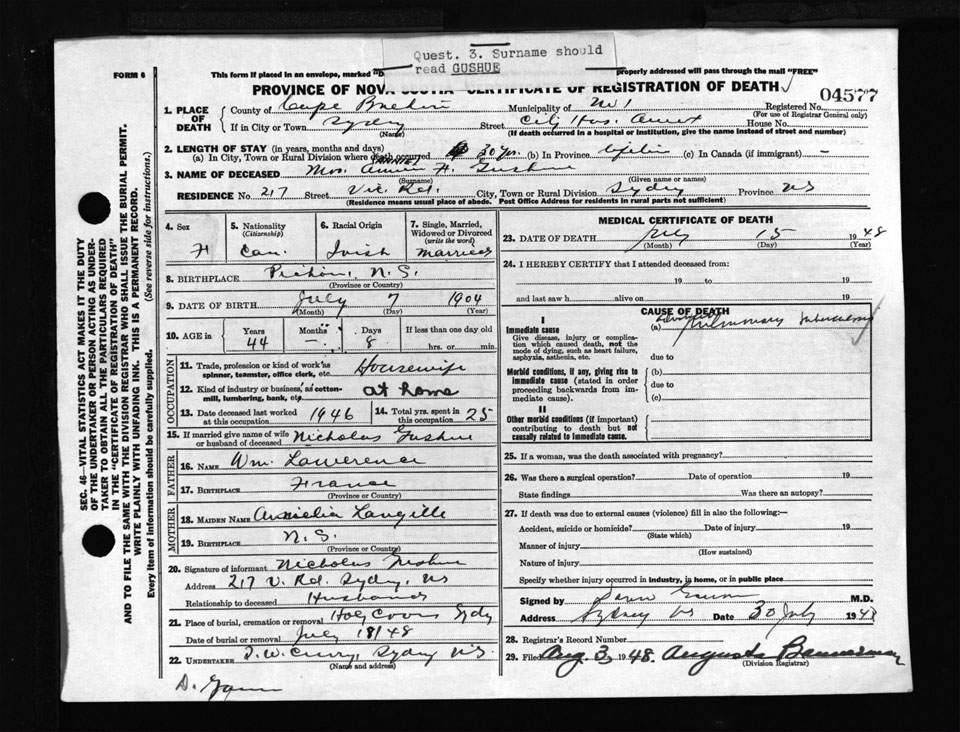 Quest. 3. Surname should
read GUSHUE
FORM 6
This form if placed in an envelope, marked "D properly addressed will pass through the mail "FREE"
PROVINCE OF NOVA SCOTIA CERTIFICATE OF REGISTRATION OF DEATH
04577
1. PLACE OF DEATH
County of Cape Breton Municipality of No 1 Registered No.
(For use of Registrar General only)
If in City or Town Sydney Street City Hos. Annex House No.
(Name) (If death occurred in a hospital or institution, give the name instead of street and number)
2. LENGTH OF STAY (in years, months and days)
(a) In City, Town or Rural Division where death occurred 30 yrs. (b) In Province Life (c) In Canada (if immigrant) -
ANNIE
3. NAME OF DECEASED Mrs. Annie H. Gushue
(Surname) (Given name or names)
RESIDENCE No. 217 Street Vic. Rd. City, Town or Rural Division Sydney Province NS
(Residence means usual place of abode. Post Office Address for residents in rural parts not sufficient)
4. Sex
F
5. Nationality
(Citizenship)
Can.
6. Racial Origin
Irish
7. Single, Married,
Widowed or Divorced
(write the word)
Married
8. BIRTHPLACE Pictou, N.S.
(Province or Country)
9. DATE OF BIRTH July 7 1904
(Month) (Day) (Year)
10. AGE in
Years Months Days If less than one day old
44 - 8 hrs. or min.
OCCUPATION
11. Trade, profession or kind of work as
spinner, teamster, office clerk, etc. Housewife
12. Kind of industry or business, as cotton-
mill, lumbering, bank, etc. at home
13. Date deceased last worked
at this occupation 1946
14. Total yrs. spent in
this occupation 25
15. If married give name of wife
or husband of deceased Nicholas Gushue
FATHER
16. NAME Wm. Lawerence
17. BIRTHPLACE France
(Province or Country)
MOTHER
18. MAIDEN NAME Amelia Langille
19. BIRTHPLACE N.S.
(Province or Country)
20. Signature of informant Nicholas Gushue
Address 217 V. Rd. Sydney, NS
Relationship to deceased Husband
21. Place of burial, cremation or removal Holy Cross Sydney
Date of burial or removal July 18/48
22. UNDERTAKER D.W. Curry, Sydney N.S.
(Name and address)
MEDICAL CERTIFICATE OF DEATH
23. DATE OF DEATH July 15 1948
(Month) (Day) (Year)
24. I HEREBY CERTIFY that I attended deceased from:
19 to 19
and last saw h alive on 19
CAUSE OF DEATH
I
Immediate cause
Give disease, injury or complica-
tion which caused death, not the
mode of dying, such as heart failure,
asphyxia, asthenia, etc.
(a) Pulmonary tuberculosis
due to
Morbid conditions, if any, giving rise to
immediate cause (stated in order
proceeding backwards from im-
mediate cause).
(b)
due to
(c)
II
Other morbid conditions (if important)
contributing to death but not
causally related to immediate cause.
25. If a woman, was the death associated with pregnancy?
26. Was there a surgical operation? Date of operation 19
State findings Was there an autopsy?
27. If death was due to external causes (violence) fill in also the following:-
Accident, suicide or homicide? Date of injury 19
(State which)
Manner of injury
(How sustained)
Nature of injury
Specify whether injury occurred in industry, in home, or in public place
Signed by M.D.
Address Sydney NS Date 30 July 1948
28. Registrar's Record Number
29. Filed Aug. 3, 1948. Augusta Bannerman
(Division Registrar)
SEC. 46-VITAL STATISTICS ACT MAKES IT THE DUTY
OF THE UNDERTAKER OR PERSON ACTING AS UNDER-
TAKER TO OBTAIN ALL THE PARTICULARS REQUIRED
IN THE "CERTIFICATE OF REGISTRATION OF DEATH"
AND TO FILE THE SAME WITH THE DIVISION REGISTRAR WHO SHALL ISSUE THE BURIAL PERMIT.
WRITE PLAINLY WITH UNFADING INK. THIS IS A PERMANENT RECORD.
Every item of information should be carefully supplied. (See reverse side for instructions.)